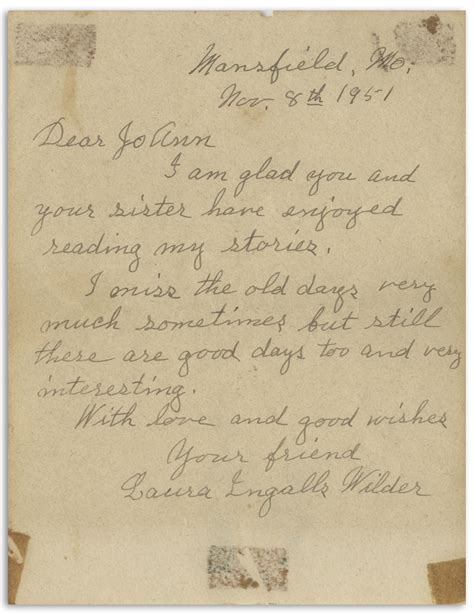 Mansfield, Mo.
Nov. 8th 1951
Dear JoAnn
I am glad you and
your sister have enjoyed
reading my stories.
I miss the old days very
much sometimes but still
there are good days too and very
interesting.
With love and good wishes
Your friend
Laura Ingalls Wilder